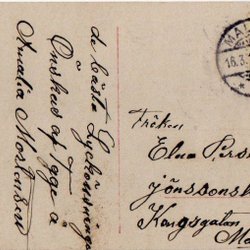 de bästa Lyckönskningar
Önskad af Tage å
Amalia Mortensen
MAL
16.3.1
Fröken
Elna Pers
Jönssonsk
Kungsgatan
Ma